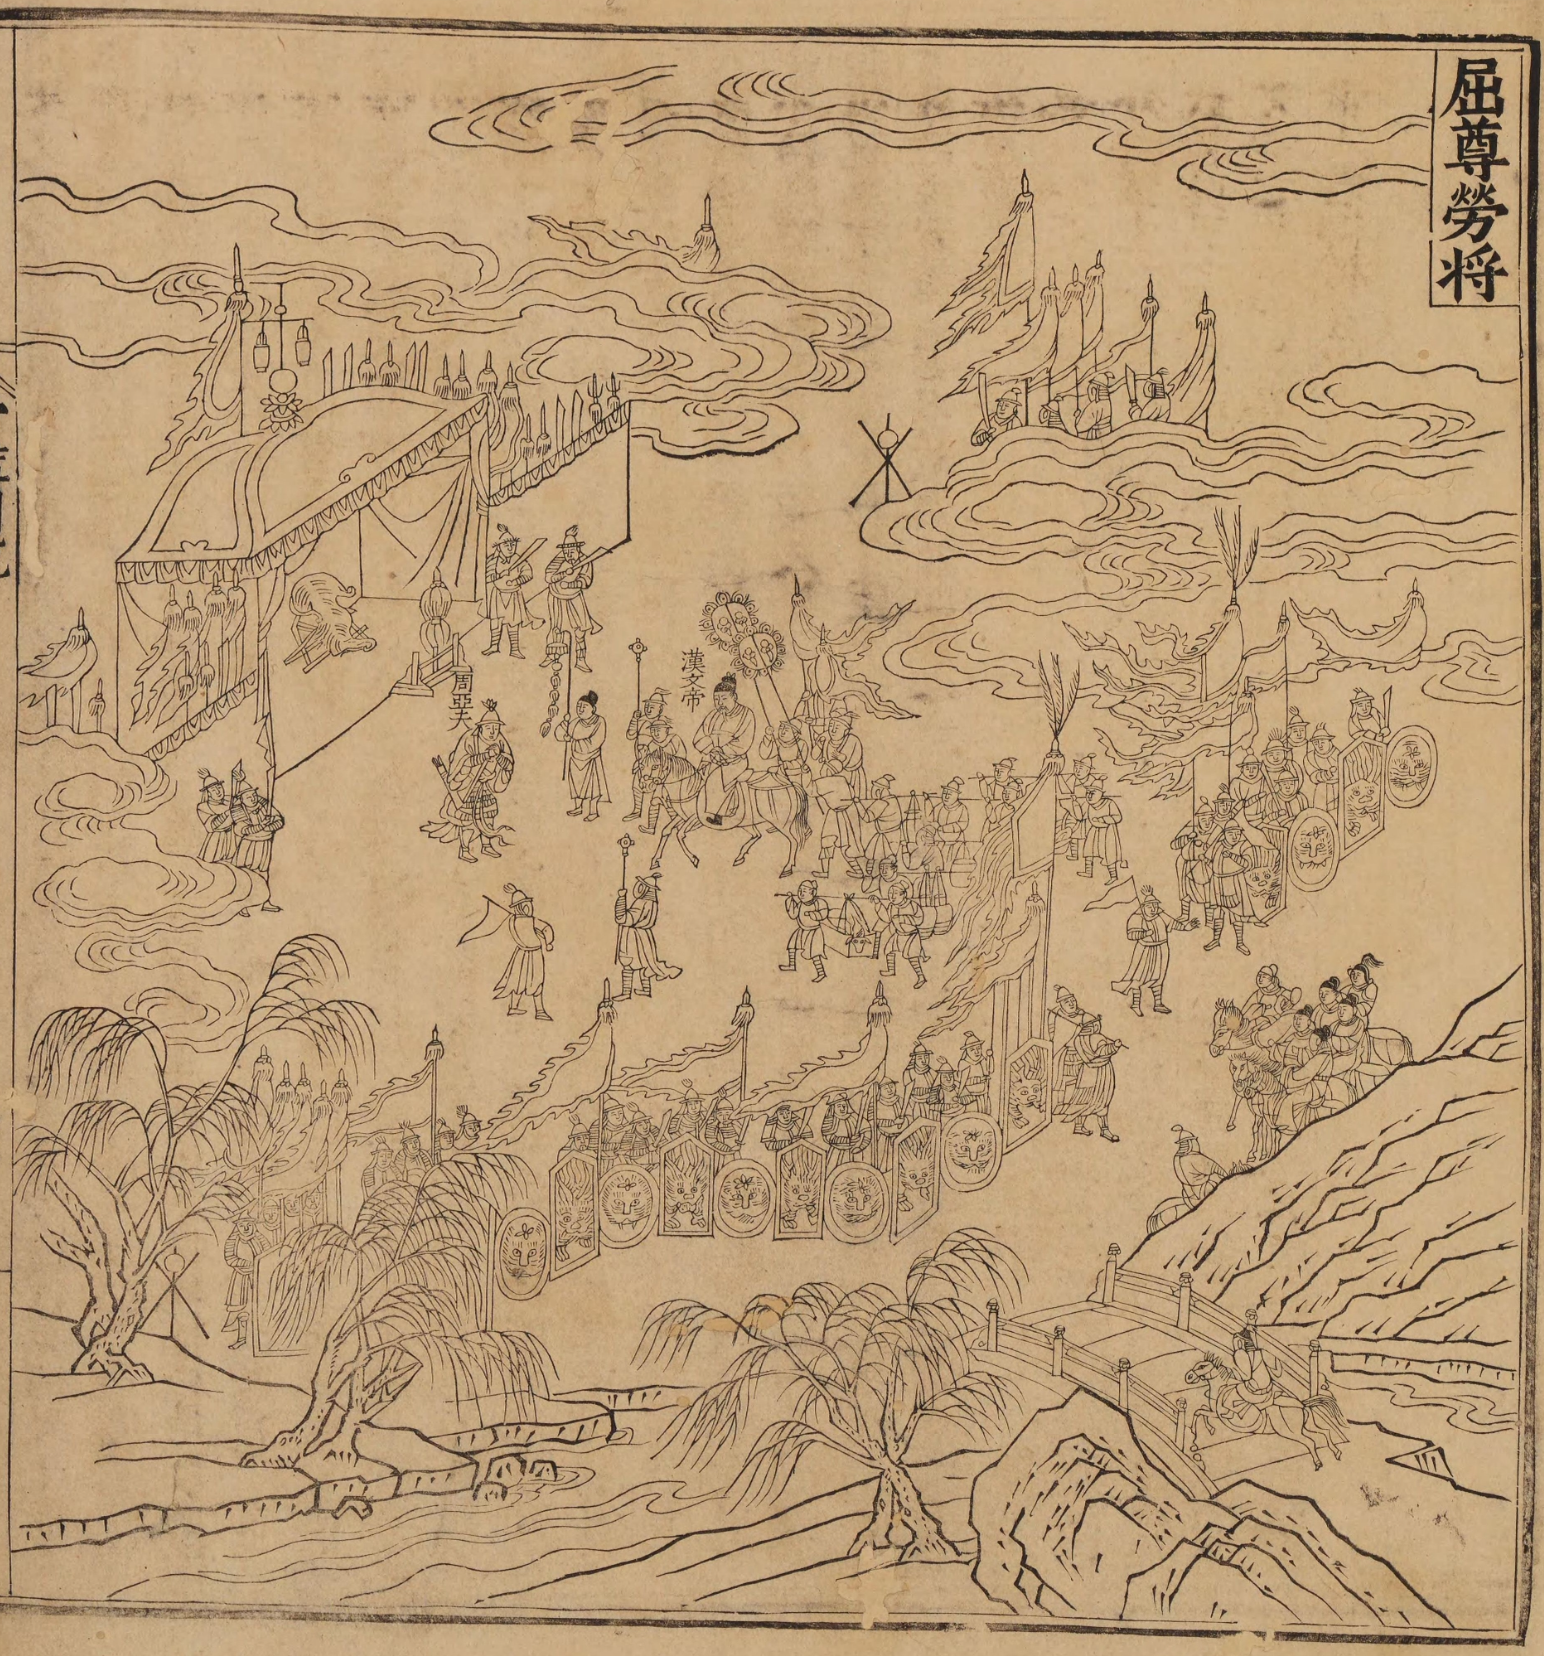 屈尊勞将
漢文帝
周亞夫